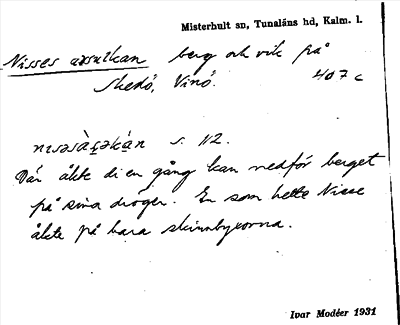 Misterhult sn, Tunaläns hd, Kalm. l.
Nisses berg och vik på
Skedö, Vinö. 407 c
s. 112.
Där åkte di en gång kan nedför berget
på sina drögen. En som hette Nisse
åkte på bara skinnbyxorna.
Ivar Modéer 1931